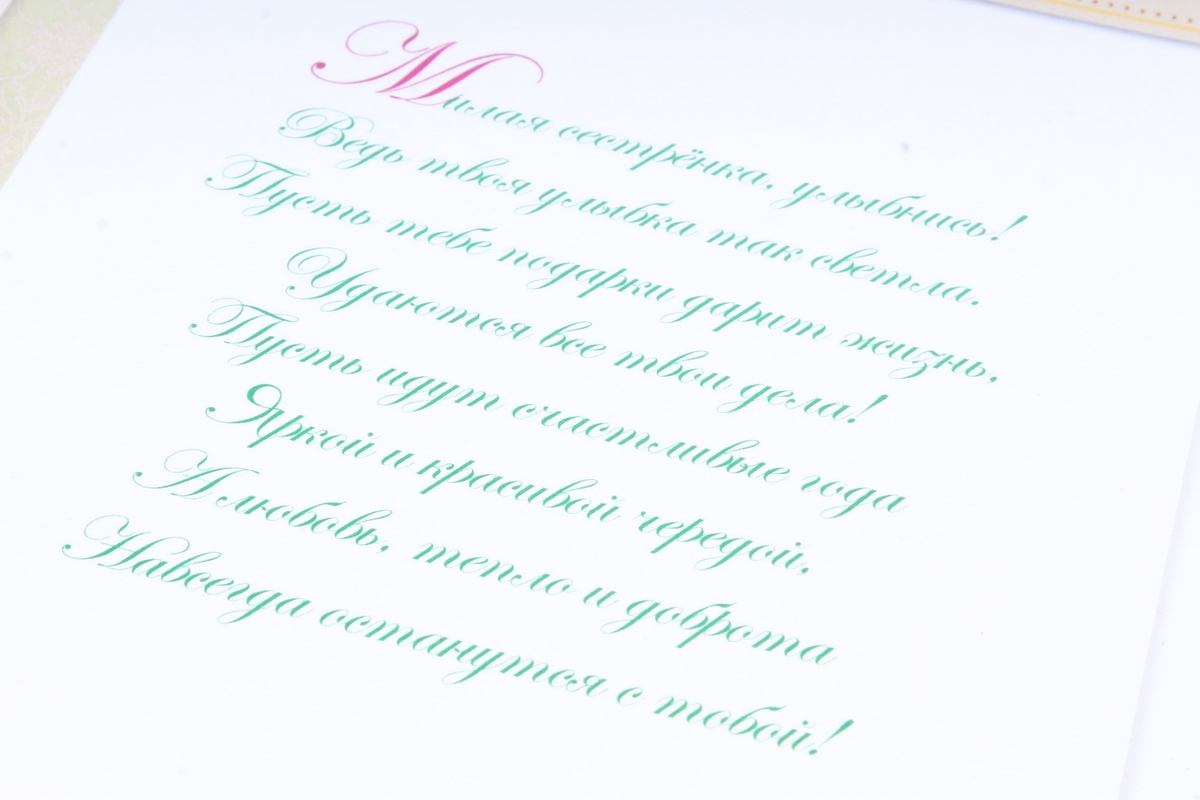 Милая сестрёнка, улыбнись!
Ведь твоя улыбка так светла.
Пусть тебе подарки дарит жизнь,
Удаются все твои дела!
Пусть идут счастливые года
Яркой и красивой чередой,
А любовь, тепло и доброта
Навсегда останутся с тобой!